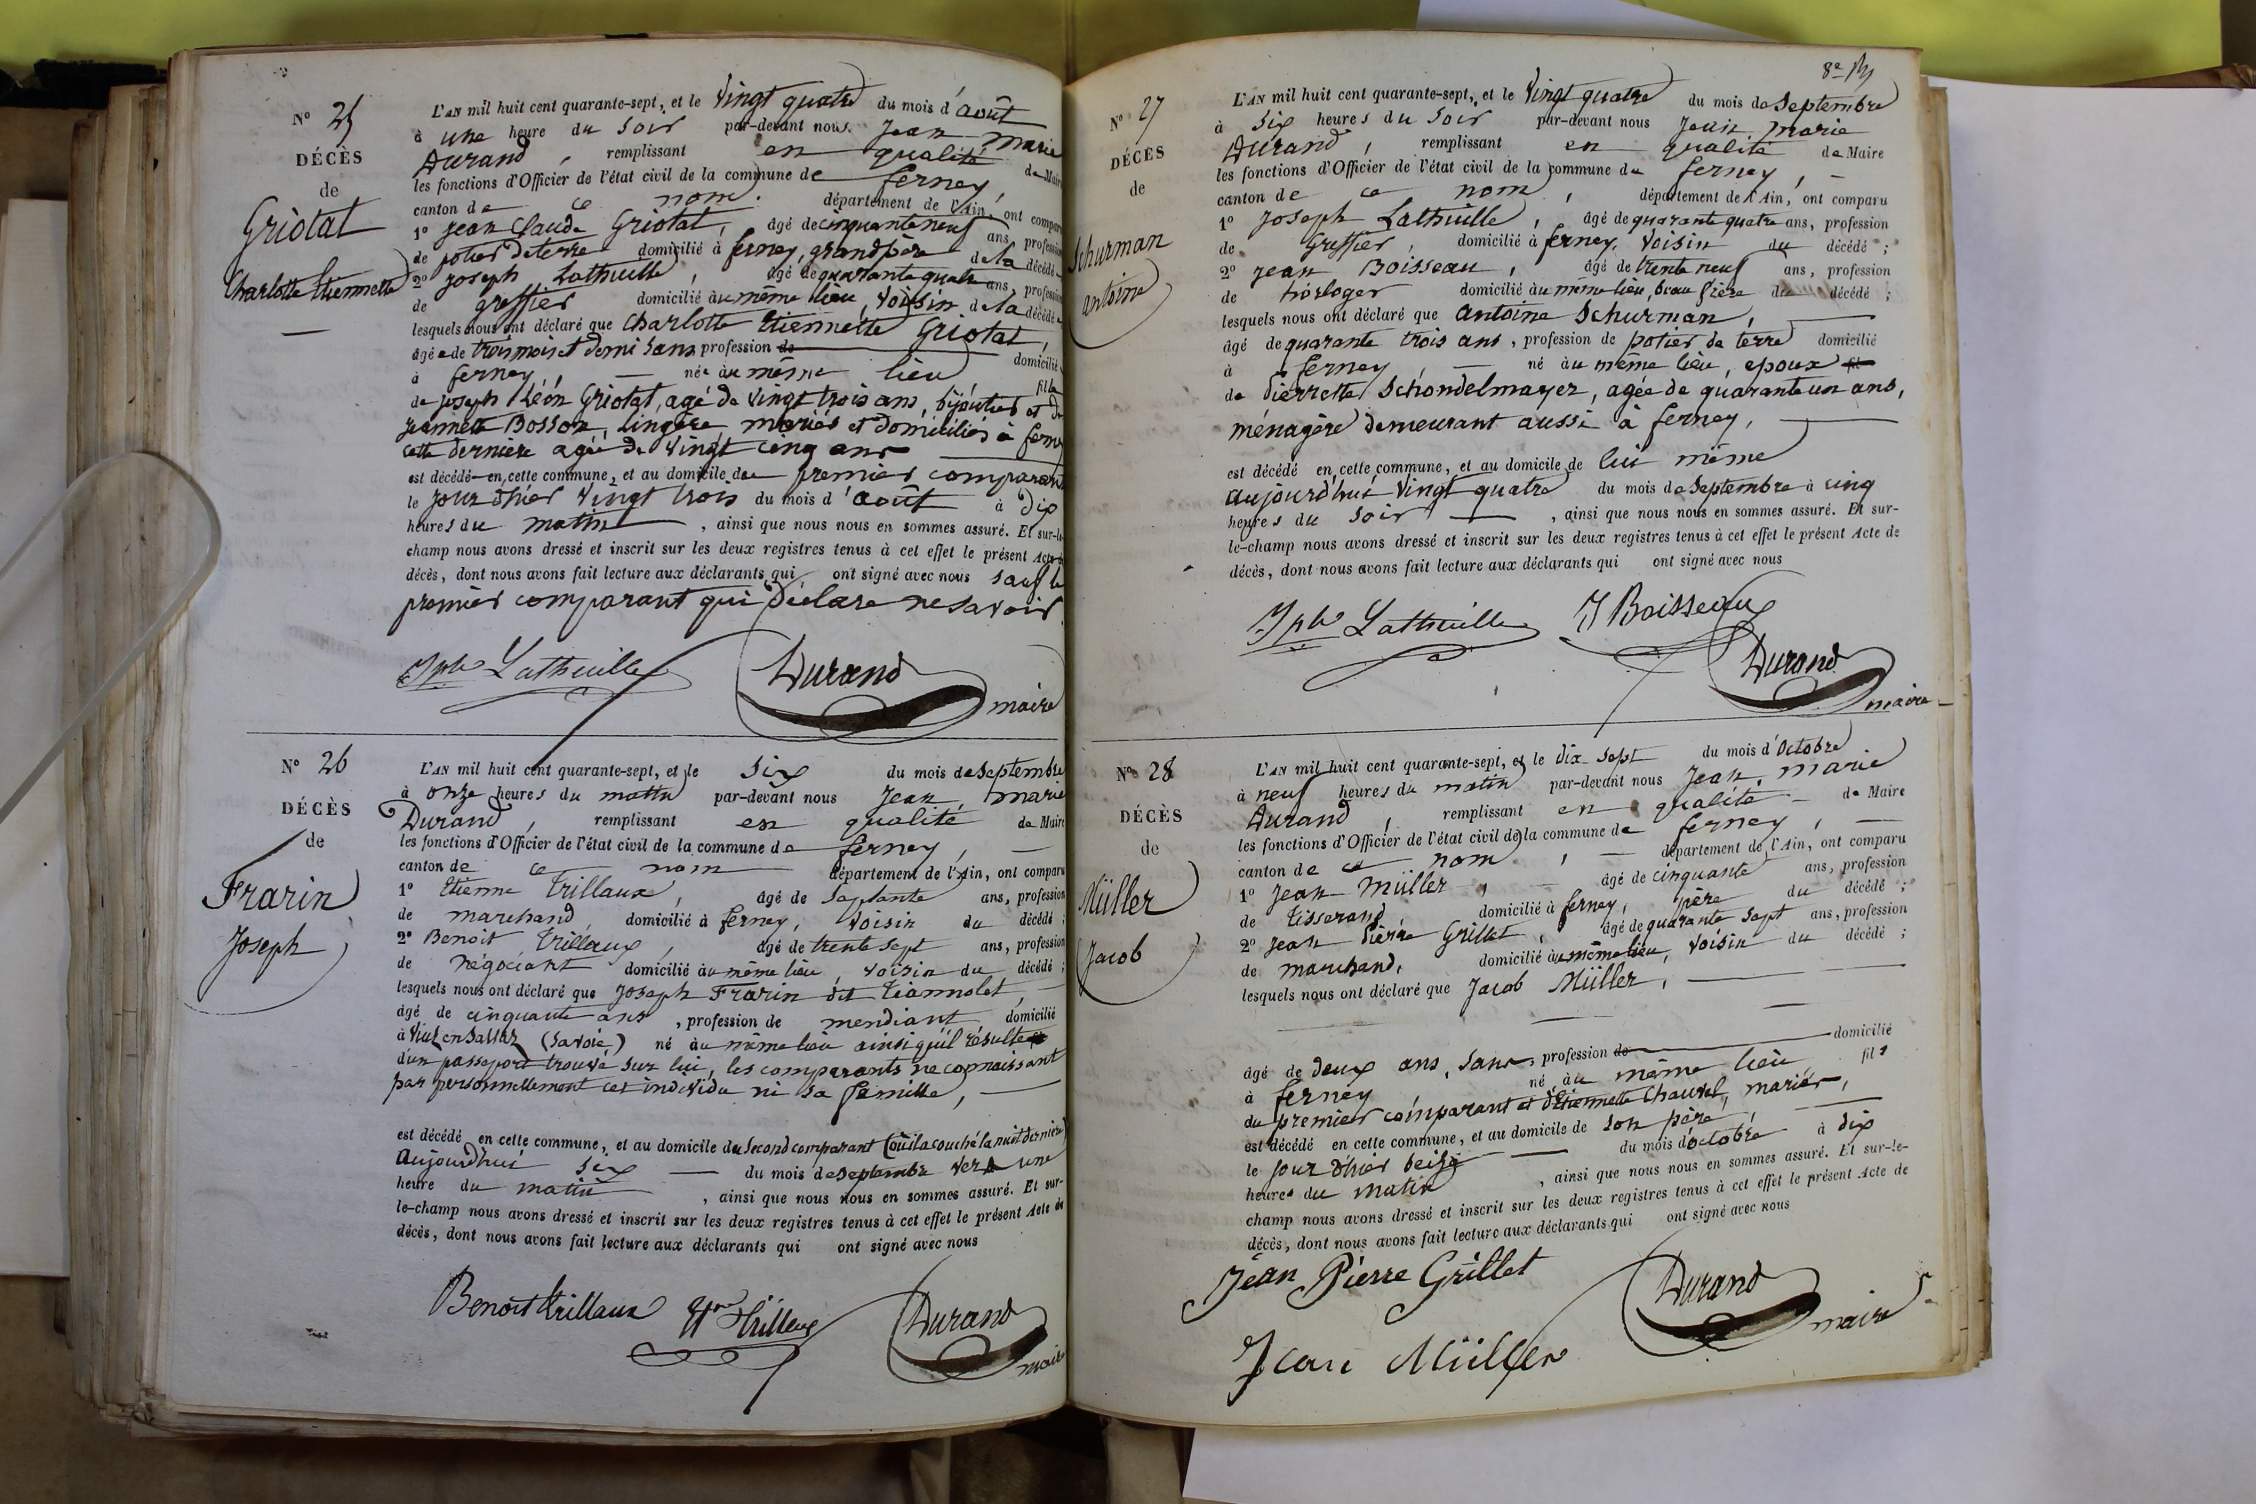 N° 25
DÉCÈS
de
Griotat
Charlotte Etiennette
L'AN mil huit cent quarante-sept, et le Vingt quatre du mois d'août
à une heure du soir par-devant nous Jean Marie
Durand, remplissant en qualité de Maire
les fonctions d'Officier de l'état civil de la commune de ferney,
canton de ce nom. département de l'Ain, ont comparu
1° Jean Claude Griotat, âgé de cinquante neuf ans, profession
de potier de terre domicilié à ferney, grand père de la décédée
2° Joseph Lathuille, âgé de quarante quatre ans, profession
de greffier domicilié au même lieu, voisin de la décédée
lesquels nous ont déclaré que Charlotte Etiennette Griotat,
âgée de trois mois et demi sans profession de domicilié
à ferney, née au même lieu fille
de Joseph Léon Griotat, agé de vingt trois ans, bijoutier et de
Jeannette Bosson, lingère mariés et domiciliés à ferney
cette dernière agée de vingt cinq ans
est décédée en cette commune, et au domicile du premier comparant
le jour d'hier vingt trois du mois d'août à dix
heures du matin, ainsi que nous nous en sommes assuré. Et sur-le-
champ nous avons dressé et inscrit sur les deux registres tenus à cet effet le présent Acte de
décès, dont nous avons fait lecture aux déclarants qui ont signé avec nous sauf le
premier comparant qui déclare ne savoir
Jph Lathuille Durand
maire
N° 26
DÉCÈS
de
Frarin
Joseph
L'AN mil huit cent quarante-sept, et le six du mois de Septembre
à onze heures du matin par-devant nous Jean Marie
Durand, remplissant en qualité de Maire
les fonctions d'Officier de l'état civil de la commune de ferney,
canton de ce nom département de l'Ain, ont comparu
1° Etienne Trillaux, âgé de Septante ans, profession
de marchand domicilié à ferney, voisin du décédé ;
2° Benoit Trillaux, âgé de trente sept ans, profession
de négociant domicilié au même lieu, voisin du décédé ;
lesquels nous ont déclaré que Joseph Frarin dit
âgé de cinquante ans, profession de mendiant domicilié
à (Savoie) né au même lieu ainsi qu'il résulte
d'un passeport trouvé sur lui, les comparants ne connaissant
pas personnellement cet individu ni sa famille,
est décédé en cette commune, et au domicile du second comparant (où il a couché la nuit dernière)
aujourd'hui six du mois de Septembre vers une
heure du matin, ainsi que nous nous en sommes assuré. Et sur-
le-champ nous avons dressé et inscrit sur les deux registres tenus à cet effet le présent Acte de
décès, dont nous avons fait lecture aux déclarants qui ont signé avec nous
Benoit Trillaux Et Trillaux Durand
maire
8e
N° 27
DÉCÈS
de
Schurman
antoine
L'AN mil huit cent quarante-sept, et le Vingt quatre du mois de Septembre
à six heures du soir par-devant nous Jean Marie
Durand, remplissant en qualité de Maire
les fonctions d'Officier de l'état civil de la commune de ferney,
canton de ce nom, département de l'Ain, ont comparu
1° Joseph Lathuille, âgé de quarante quatre ans, profession
de Greffier, domicilié à ferney, voisin du décédé ;
2° Jean Boisseau, âgé de trente neuf ans, profession
de horloger domicilié au même lieu, beau frère du décédé ;
lesquels nous ont déclaré que Antoine Schurman,
âgé de quarante trois ans, profession de potier de terre domicilié
à ferney né au même lieu, époux fil
de Pierrette Schondelmayer, agée de quarante un ans,
ménagère demeurant aussi à ferney,
est décédé en cette commune, et au domicile de lui même
aujourd'hui vingt quatre du mois de Septembre à cinq
heures du soir, ainsi que nous nous en sommes assuré. Et sur-
le-champ nous avons dressé et inscrit sur les deux registres tenus à cet effet le présent Acte de
décès, dont nous avons fait lecture aux déclarants qui ont signé avec nous
Jph Lathuille J Boisseau
Durand
maire
N° 28
DÉCÈS
de
Müller
Jacob
L'AN mil huit cent quarante-sept, et le dix-sept du mois d'Octobre
à neuf heures du matin par-devant nous Jean Marie
Durand, remplissant en qualité de Maire
les fonctions d'Officier de l'état civil de la commune de ferney,
canton de ce nom, département de l'Ain, ont comparu
1° Jean Müller, âgé de cinquante ans, profession
de tisserand, domicilié à ferney, père du décédé ;
2° Jean Pierre Grillet, âgé de quarante sept ans, profession
de marchand, domicilié au même lieu, voisin du décédé ;
lesquels nous ont déclaré que Jacob Müller,
âgé de deux ans, sans, profession de domicilié
à ferney né au même lieu fils
du premier comparant et d'Etiennette Chauvet, mariés,
est décédé en cette commune, et au domicile de son père
le jour d'hier seize du mois d'octobre à dix
heures du matin, ainsi que nous nous en sommes assuré. Et sur-le-
champ nous avons dressé et inscrit sur les deux registres tenus à cet effet le présent Acte de
décès, dont nous avons fait lecture aux déclarants qui ont signé avec nous
Jean Pierre Grillet Durand
maire
Jean Müller